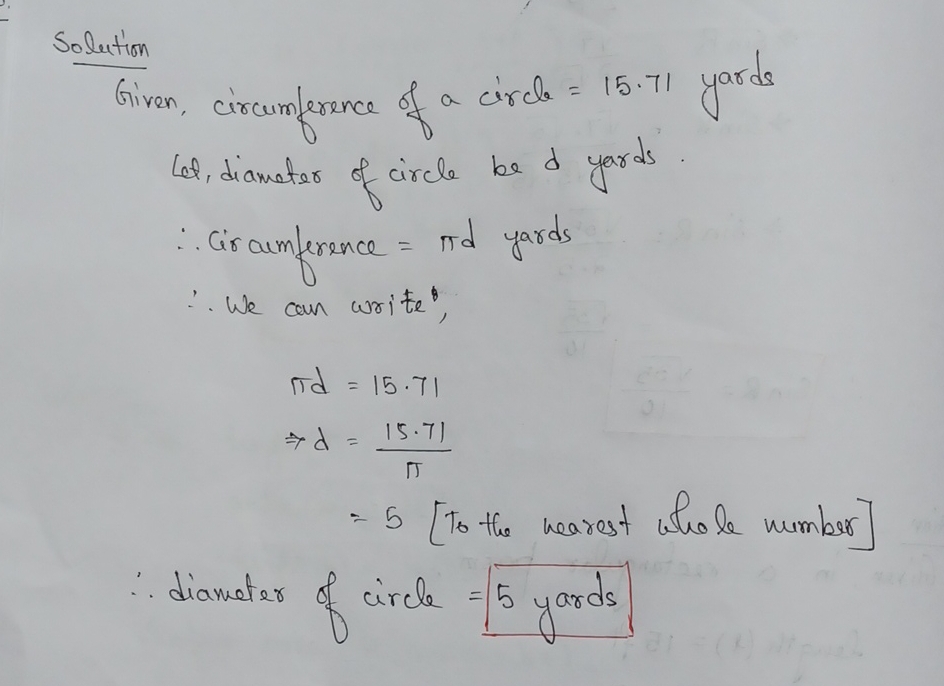 Solution
Given, circumference of a circle = 15.71 yards
Let, diameter of circle be d yards.
∴ Circumference = πd yards
∴ We can write,
πd = 15.71
⇒ d = 15.71 / π
= 5 [To the nearest whole number]
∴ diameter of circle = 5 yards